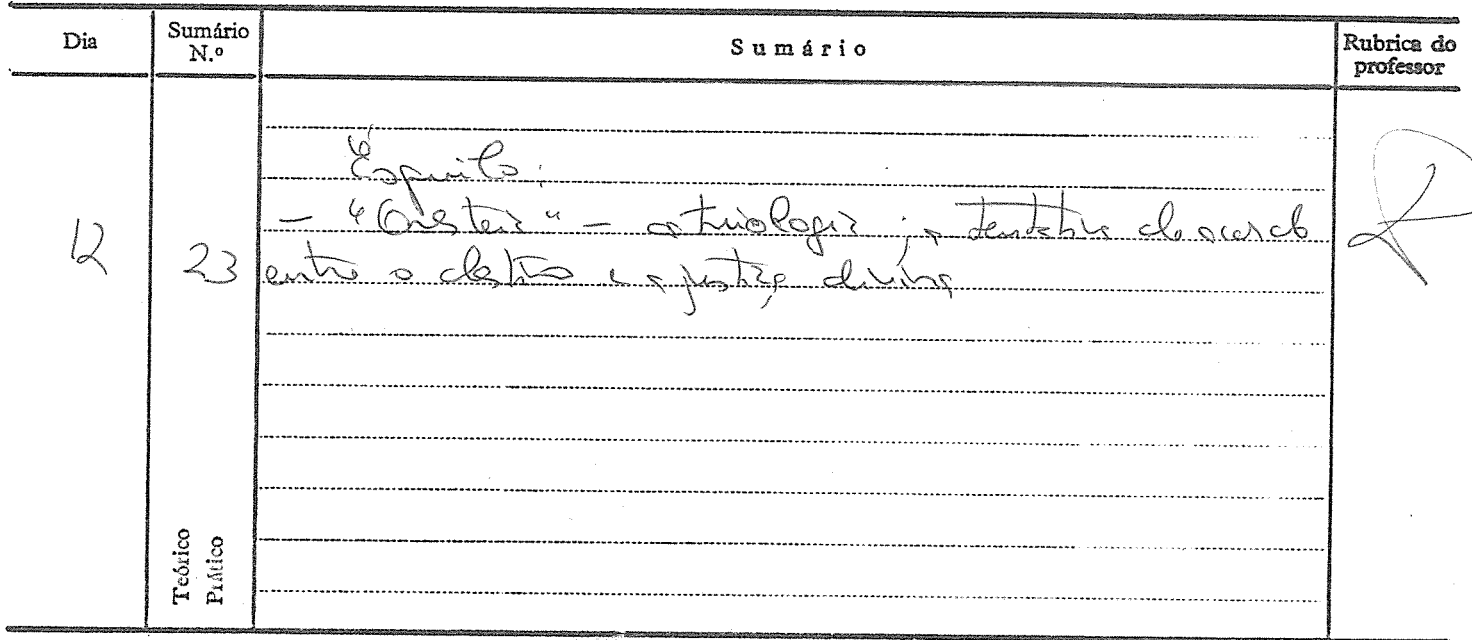 Dia
Sumário N.º
Sumário
Rubrica do professor
12
23
Ésquilo:
- "Oresteia" - a trilogia; a tentativa de acordo
entre o destino e a justiça divina
Teórico
Prático